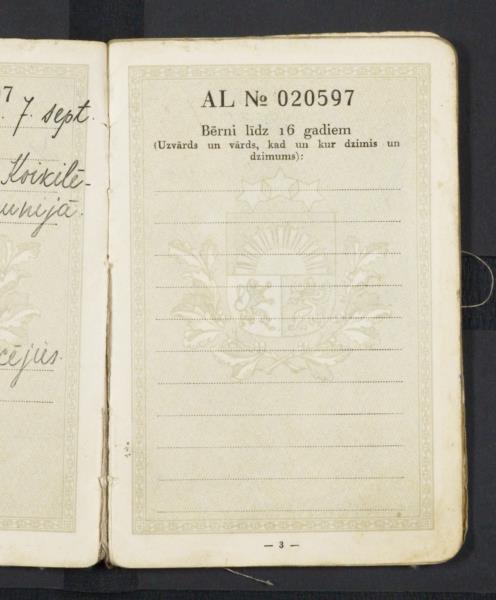 7
7. sept.
Koikilē-
unijā.
cējus.
AL № 020597
Bērni līdz 16 gadiem
(Uzvārds un vārds, kad un kur dzimis un
dzimums):
— 3 —